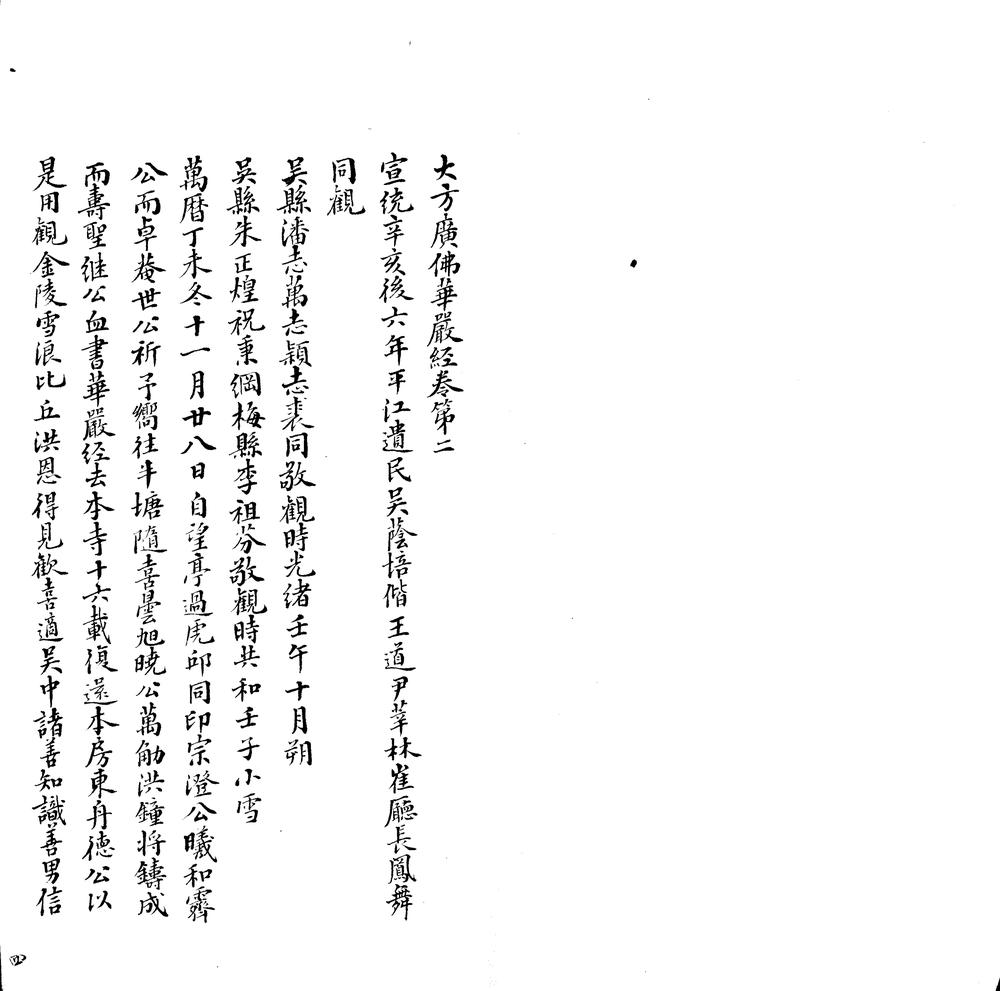 大方廣佛華嚴经卷第二
宣统辛亥後六年平江遺民吴蔭培偕王道尹莘林崔廳長鳳舞
同觀
吴縣潘志萬志穎志裘同敬觀時光绪壬午十月朔
吴縣朱正煌祝秉綱梅縣李祖芬敬觀時共和壬子小雪
萬曆丁未冬十一月廿八日自望亭過虎邱同印宗澄公曦和霽
公而卓菴世公祈予嚮往半塘隨喜曇旭曉公萬觔洪鐘将鑄成
而壽聖继公血書華嚴经去本寺十六載復還本房東舟德公以
是用觀金陵雪浪比丘洪恩得見歡喜適吴中諸善知識善男信